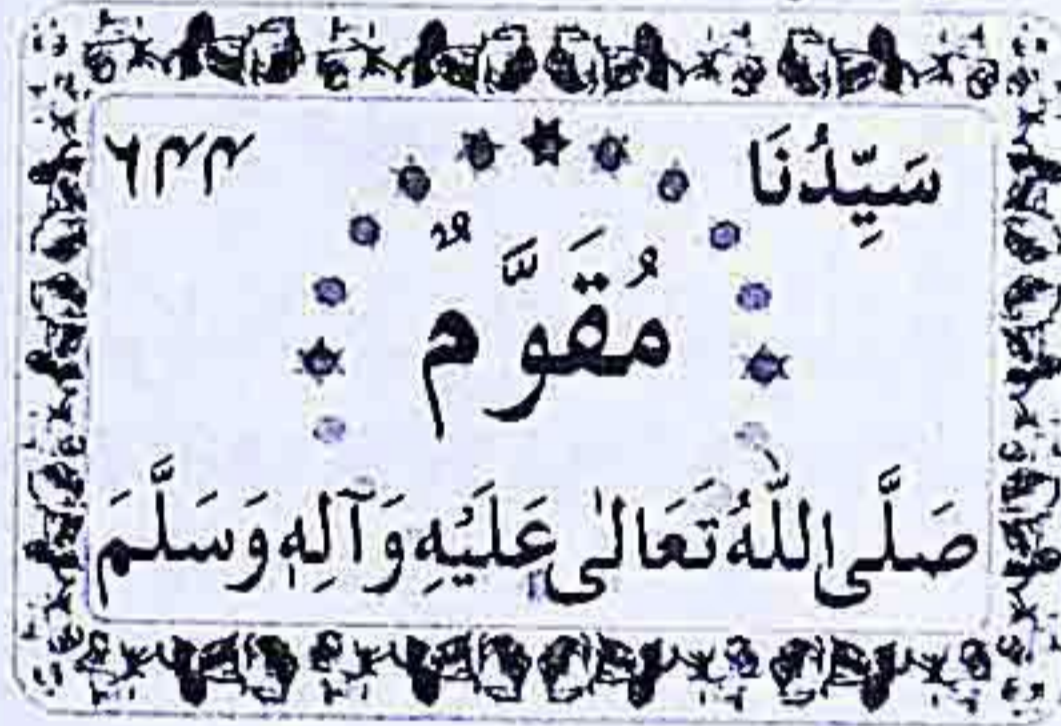 سَيِّدُنَا ٦٤٤
مُقَوَّمٌ
صَلَّى اللّٰهُ تَعَالٰى عَلَيْهِ وَآلِهٖ وَسَلَّمَ